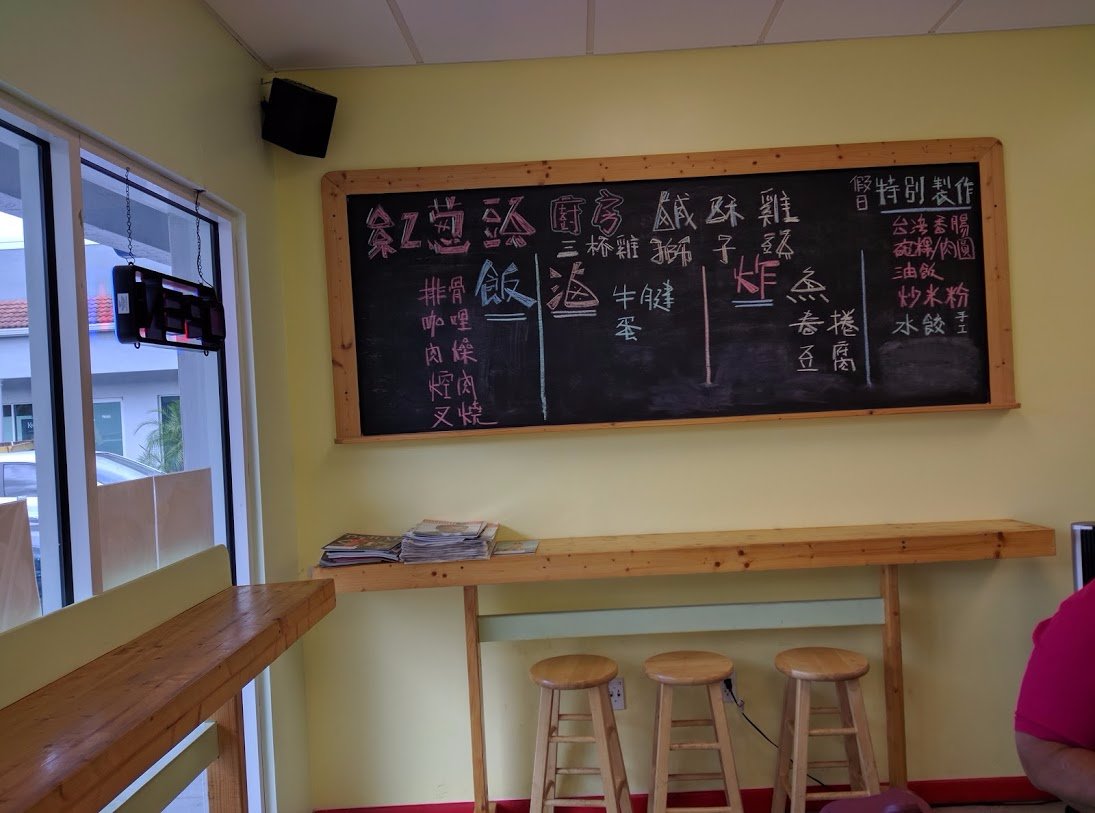 紅葱頭 廚房 鹹酥雞
三杯雞 獅子頭
飯
排骨
咖哩
肉燥
焢肉
叉燒
滷
牛腱
蛋
炸
魚
春捲
豆腐
假日特別製作
台湾香腸
碗粿/肉圓
油飯
炒米粉
水餃 手工